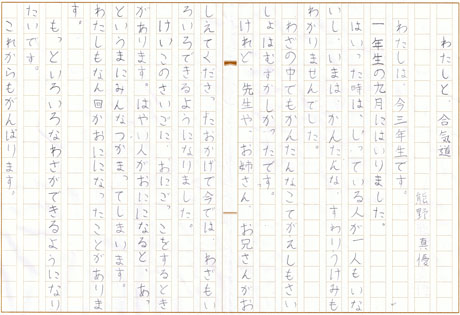 わたしと、合気道
熊野 真優
わたしは、今三年生です。
一年生の九月にはいりました。
はいった時は、しっている人が一人もいな
いし、いまは、かんたんな、すわりうけみも
わかりませんでした。
わざの中でもかんたんなこてがえしもさい
しょはむずかしかったです。
けれど、先生や、お姉さん、お兄さんがお
しえてくださったおかげで今では、わざもい
ろいろできるようになりました。
けいこのさいごに、おにごっこをするとき
があります。はやい人がおにになると、あっ
というまにみんなつかまってしまいます。
わたしもなん回かおにになったことがありま
す。
もっといろいろなわざができるようになり
たいです。
これからもがんばります。